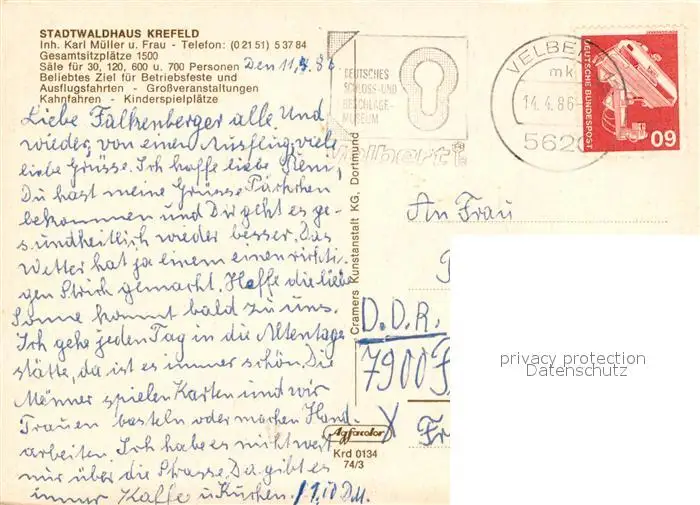 STADTWALDHAUS KREFELD
Inh. Karl Müller u. Frau - Telefon: (0 21 51) 5 37 84
Gesamtsitzplätze 1500
Säle für 30, 120, 600 u. 700 Personen
Beliebtes Ziel für Betriebsfeste und
Ausflugsfahrten - Großveranstaltungen
Kahnfahren - Kinderspielplätze
Den 11. 86
Liebe Falkenberger alle. Und
wieder von einen Ausflug, viele
liebe Grüsse. Ich hoffe liebe
Du hast meine Grüsse
bekommen und Dir geht es ge-
sundheitlich wieder besser. Das
Wetter hat ja einem einen richti-
gen Strich gemacht. Hoffe die liebe
Sonne kommt bald zu uns.
Ich gehe jeden Tag in die Altentage
stätte, da ist es immer schön. Die
Männer spielen Karten und wir
Frauen basteln oder machen Hand-
arbeiten. Ich habe es nicht weit
nur über die Strasse. Da gibt es
immer Kaffe u. Kuchen. 1,10 D.M.
Cramers Kunstanstalt KG, Dortmund
Agfacolor
Krd 0134
74/3
DEUTSCHES
SCHLOSS- UND
BESCHLÄGE-
MUSEUM
Velbert
VELBERT
mk
14.4.86
5620
DEUTSCHE BUNDESPOST
60
An Frau
D.D.R.
7900
X Fr
privacy protection
Datenschutz